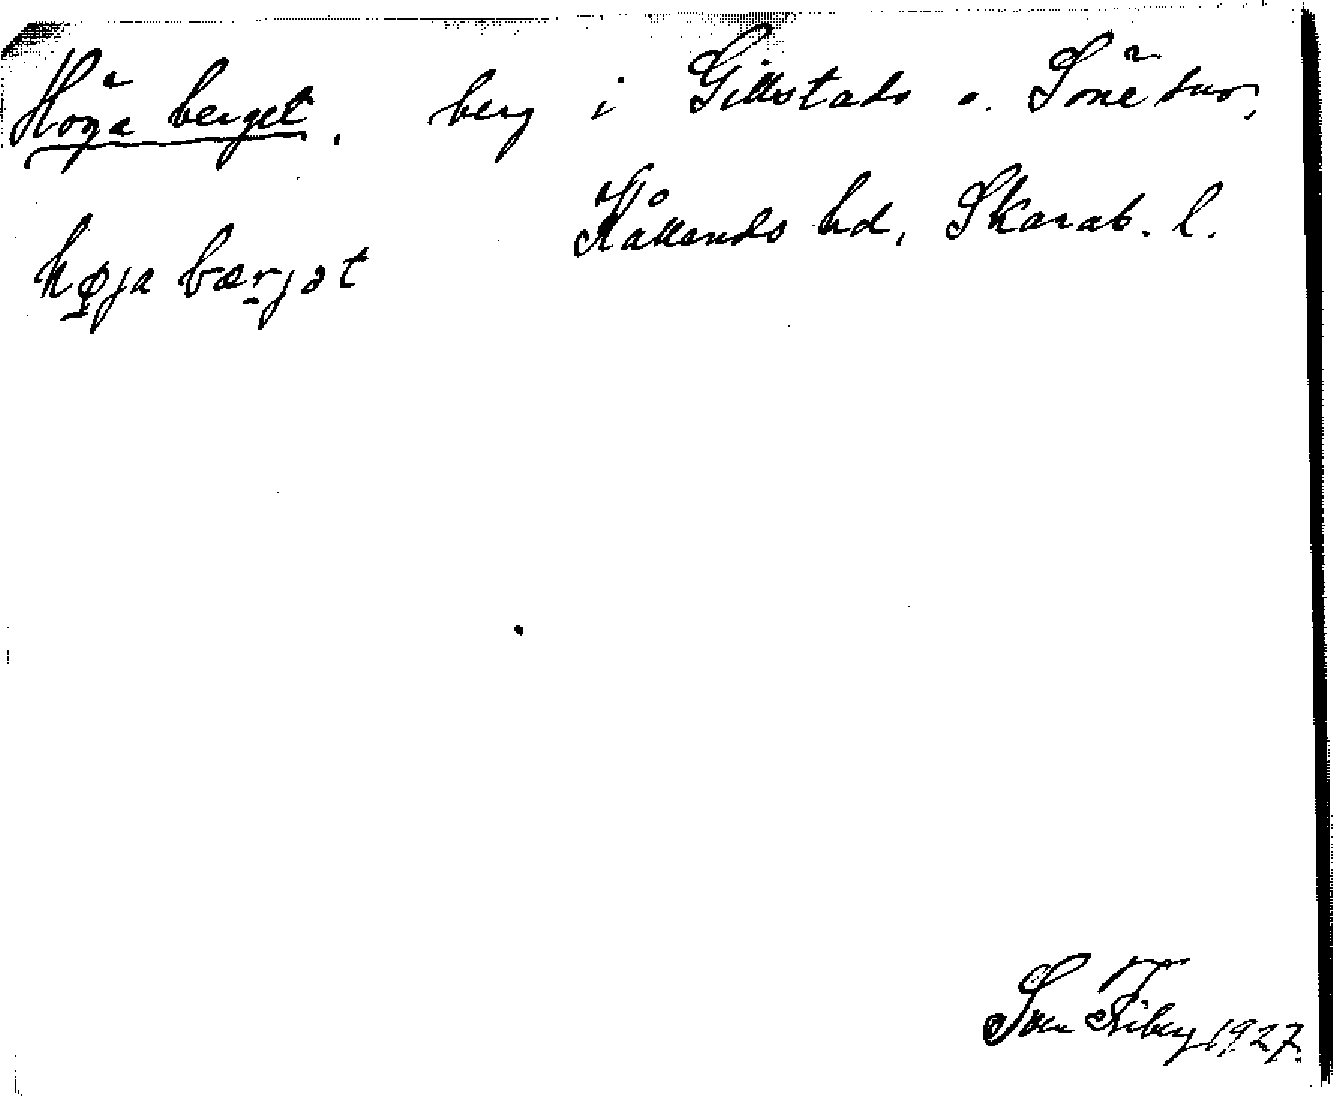 Höga berget. berg i Gillstads o. Söne snr,
Kållands hd, Skarab. l.
høja bærjət
Sven Friberg 1927.